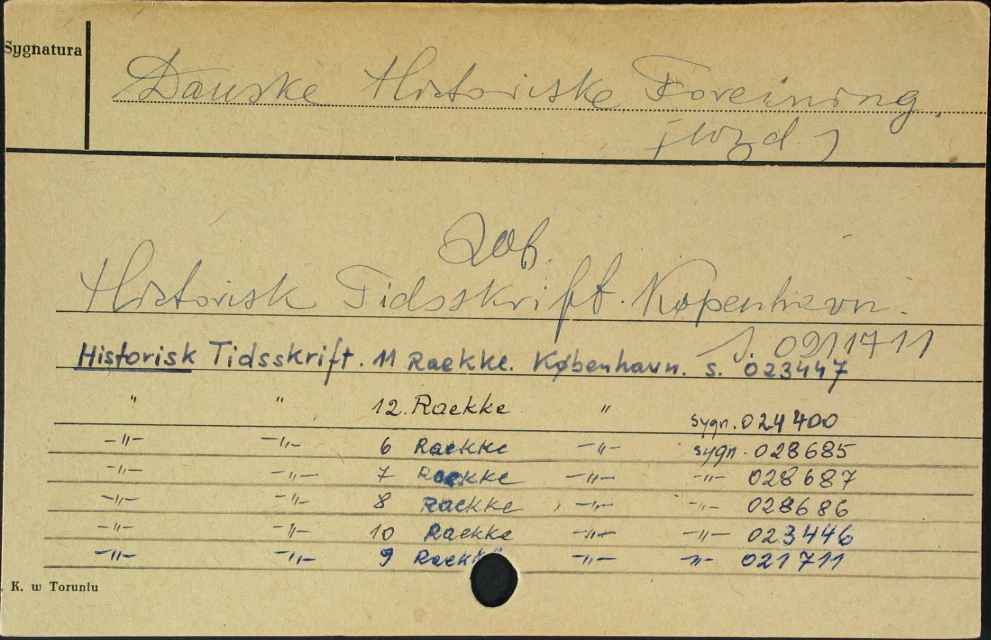 Sygnatura
Danske Historiske Forening.
(wyd.)
Zob.
Historisk Tidsskrift. København.
S. 021711
Historisk Tidsskrift. 11 Raekke. København. S. 023447
" " 12. Raekke " sygn. 024400
-"- -"- 6 Raekke -"- sygn. 028685
-"- -"- 7 Raekke -"- -"- 028687
-"- -"- 8 Raekke -"- -"- 028686
-"- -"- 10 Raekke -"- -"- 023446
-"- -"- 9 Raekke -"- -"- 021711
K. w Toruniu